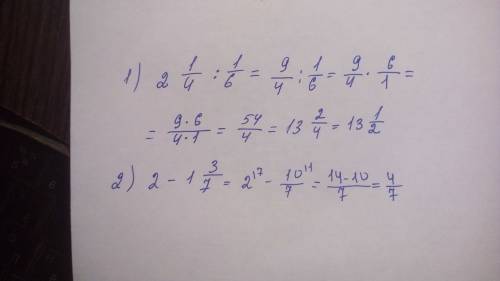 1) 2 1/4 : 1/6 = 9/4 : 1/6 = 9/4 · 6/1 =
= 9·6/4·1 = 54/4 = 13 2/4 = 13 1/2
2) 2 - 1 3/7 = 2^17 - 10^11/7 = 14-10/7 = 4/7